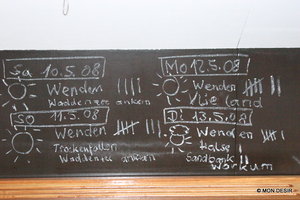 Sa 10.5.08
Wenden
Waddenzee ankern
So 11.5.08
Wenden
Trockenfallen
Waddenzee ankern
Mo 12.5.08
Wenden
Vlieland
Di 13.5.08
Wenden
Halse
Sandbank
Workum
© MON DESIR